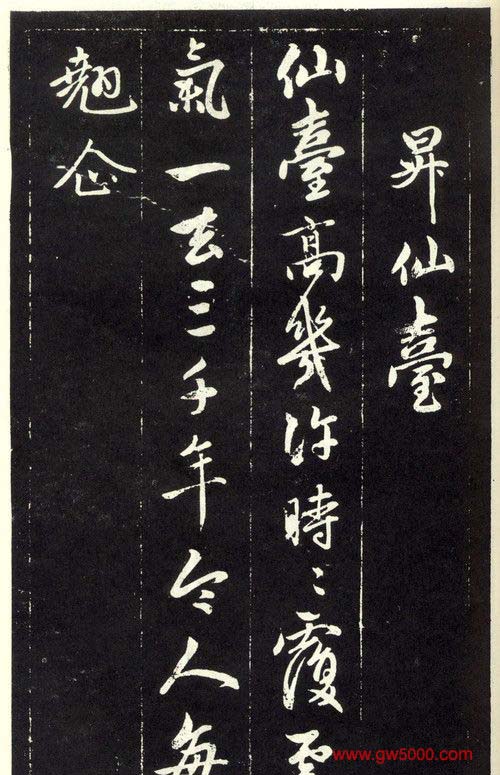 昇仙臺
仙臺髙幾許時〻覆雲
氣一去三千年令人每
翹企
www.gw5000.com